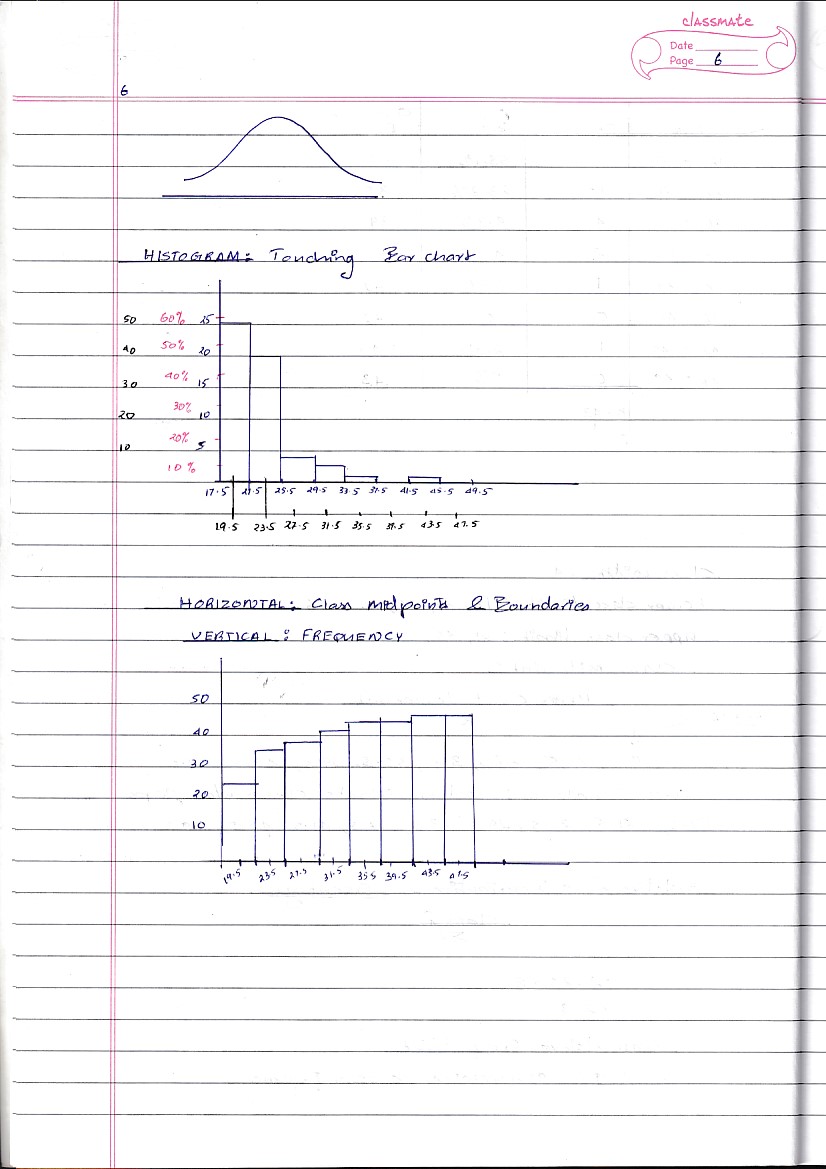 classmate
Date
Page 6
6
HISTOGRAM: Touching Bar chart
50 60% 25
40 50% 20
30 40% 15
20 30% 10
10 20% 5
10%
17.5 21.5 25.5 29.5 33.5 37.5 41.5 45.5 49.5
19.5 23.5 27.5 31.5 35.5 39.5 43.5 47.5
HORIZONTAL: Class midpoints & Boundaries
VERTICAL: FREQUENCY
50
40
30
20
10
19.5 23.5 27.5 31.5 35.5 39.5 43.5 47.5